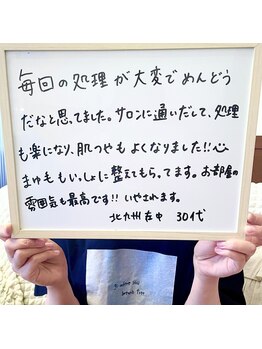 毎回の処理が大変でめんどう
だなと思ってました。サロンに通いだして、処理
も楽になり、肌つやもよくなりました!!♡
まゆももいっしょに整えてもらってます。お部屋の
雰囲気も最高です!!いやされます。
北九州在中 30代